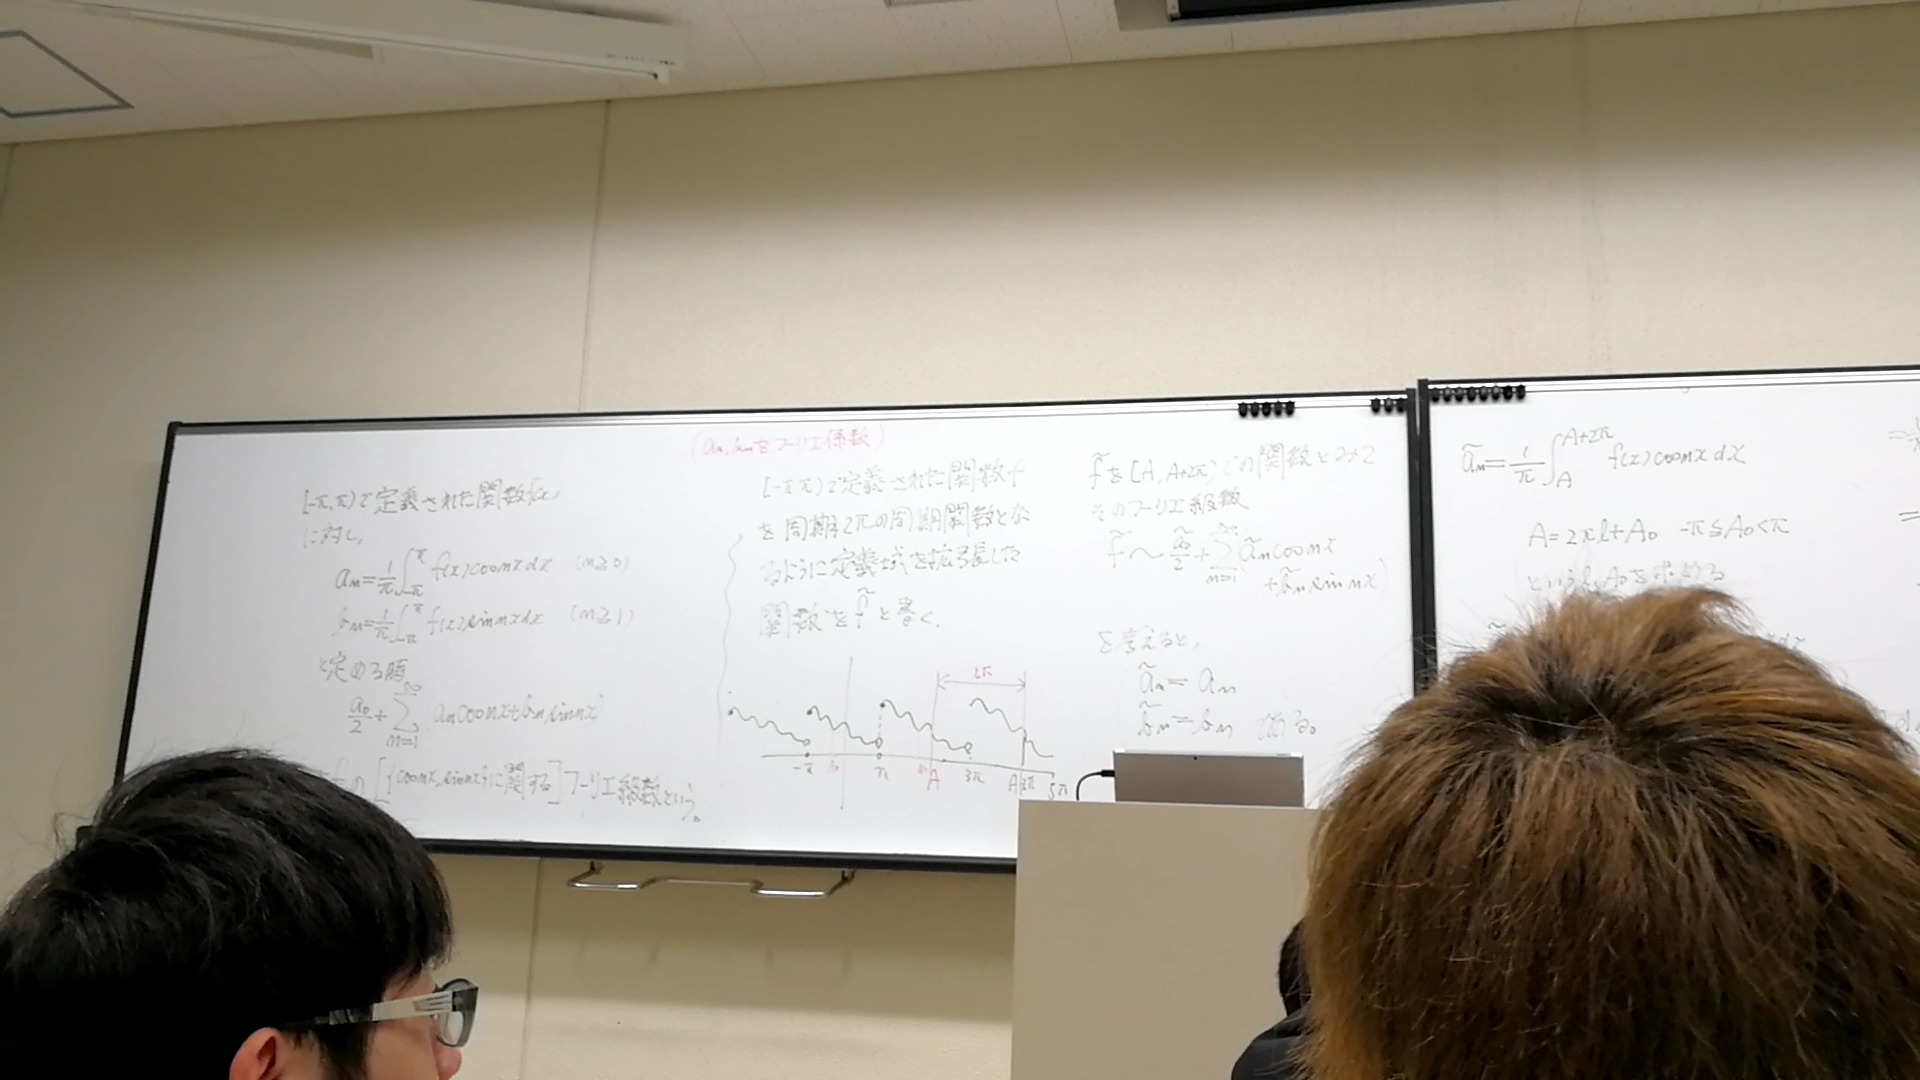 (an, bnをフーリエ係数)
[-π,π)で定義された関数f(x)
に対し,
an=1/π∫_{-π}^{π} f(x)cosnxdx (n≧0)
bn=1/π∫_{-π}^{π} f(x)sinnxdx (n≧1)
と定める時
a0/2+∑_{n=1}^{∞} ancosnx+bnsinnx
の[{cosnx,sinnx}に関する]フーリエ級数という。
[-π,π)で定義された関数f
を周期2πの周期関数とな
るように定義域を拡張した
関数をf̃と書く.
2π
-π π A 3π A+2π 5π
f̃を[A,A+2π)での関数とみて
そのフーリエ級数
f̃〜ã0/2+∑_{n=1}^{∞} ãncosnx
+b̃nsinnx
を考えると,
ãn=an
b̃n=bn である。
ãn=1/π∫_{A}^{A+2π} f(x)cosnxdx
A=2πl+A0 -π≦A0<π
というl,A0を求める